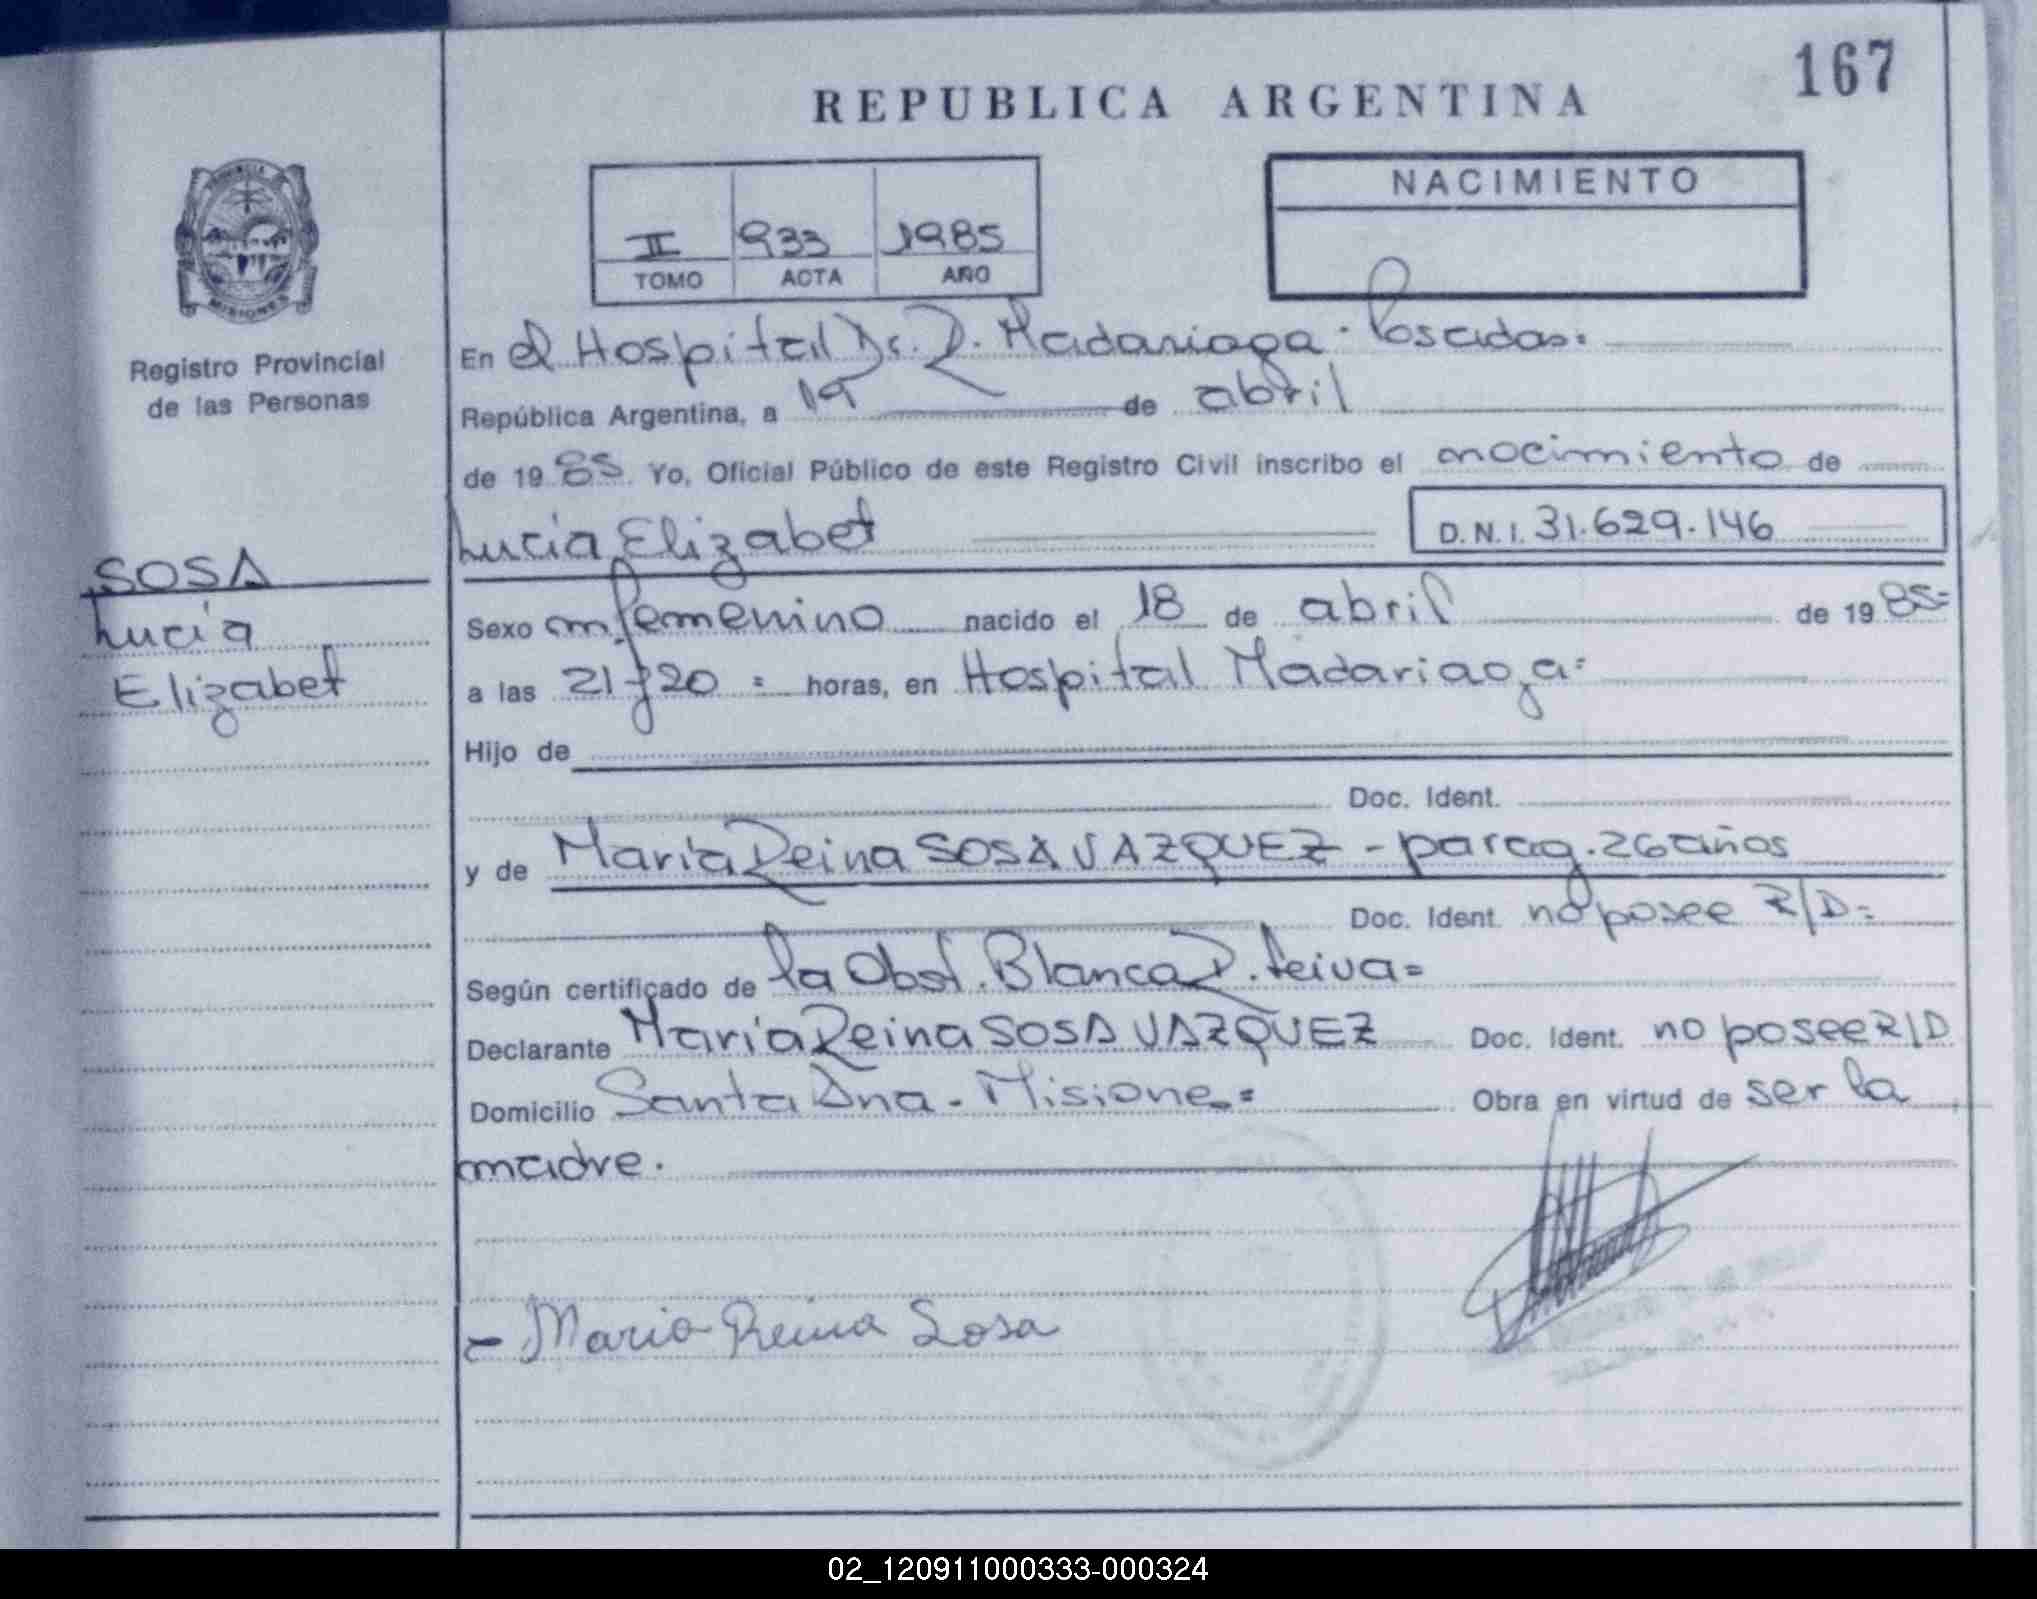 167
REPUBLICA ARGENTINA
II 933 1985
TOMO ACTA AÑO
NACIMIENTO
MISIONES
Registro Provincial
de las Personas
SOSA
Lucía
Elizabet
En el Hospital Dr. R. Madariaga - Posadas.
República Argentina, a 19 de abril
de 1985. Yo, Oficial Público de este Registro Civil inscribo el nacimiento de
Lucía Elizabet D.N.I. 31.629.146
Sexo femenino nacido el 18 de abril de 1985=
a las 21 y 20 = horas, en Hospital Madariaga=
Hijo de
Doc. Ident.
y de María Reina SOSA VAZQUEZ - parag. 26 años
Doc. Ident. no posee R/D=
Según certificado de la Obst. Blanca R. Leiva=
Declarante María Reina SOSA VAZQUEZ Doc. Ident. no posee R/D
Domicilio Santa Ana - Misiones= Obra en virtud de ser la
madre.
- Maria Reina Sosa
02_120911000333-000324